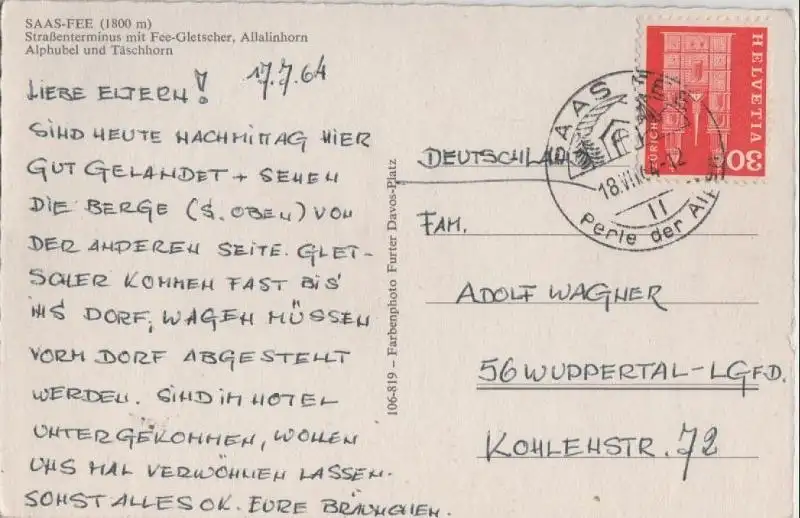 SAAS-FEE (1800 m)
Straßenterminus mit Fee-Gletscher, Allalinhorn
Alphubel und Täschhorn
17.7.64
LIEBE ELTERN!
SIND HEUTE NACHMITTAG HIER
GUT GELANDET + SEHEN
DIE BERGE (S. OBEN) VON
DER ANDEREN SEITE. GLET-
SCHER KOMMEN FAST BIS
INS DORF, WAGEN MÜSSEN
VORM DORF ABGESTELLT
WERDEN. SIND IM HOTEL
UNTERGEKOMMEN, WOLLEN
UNS MAL VERWÖHNEN LASSEN.
SONST ALLES OK. EURE BRÄUNCHEN.
106-819 – Farbenphoto Furter Davos-Platz
HELVETIA
30
ZÜRICH
SAAS FEE
18.VII.64-12
II
Perle der Alpen
DEUTSCHLAND
FAM.
ADOLF WAGNER
56 WUPPERTAL-LGFD.
KOHLENSTR. 72